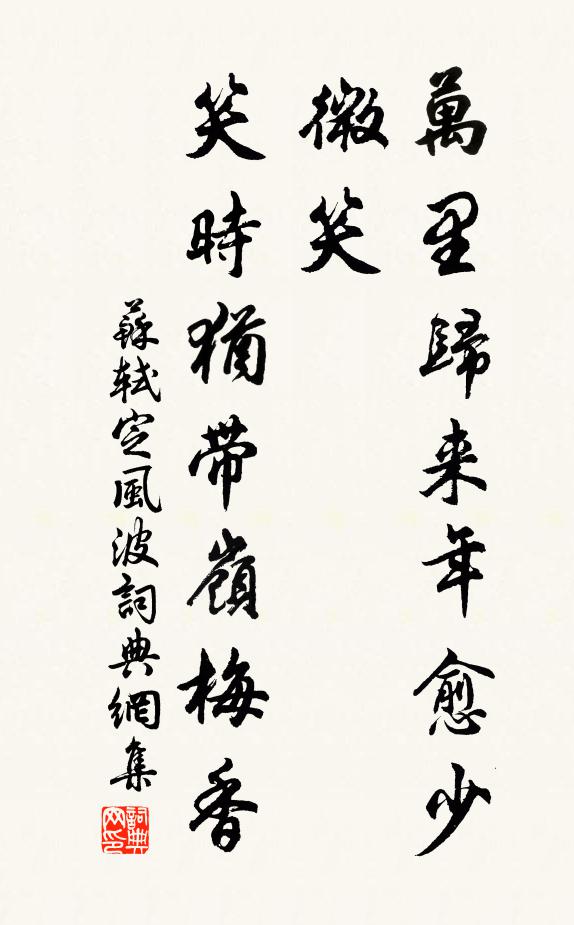 萬里歸来年愈少
微笑
笑時猶帶嶺梅香
蘇軾定風波詞典網集
詞典网印